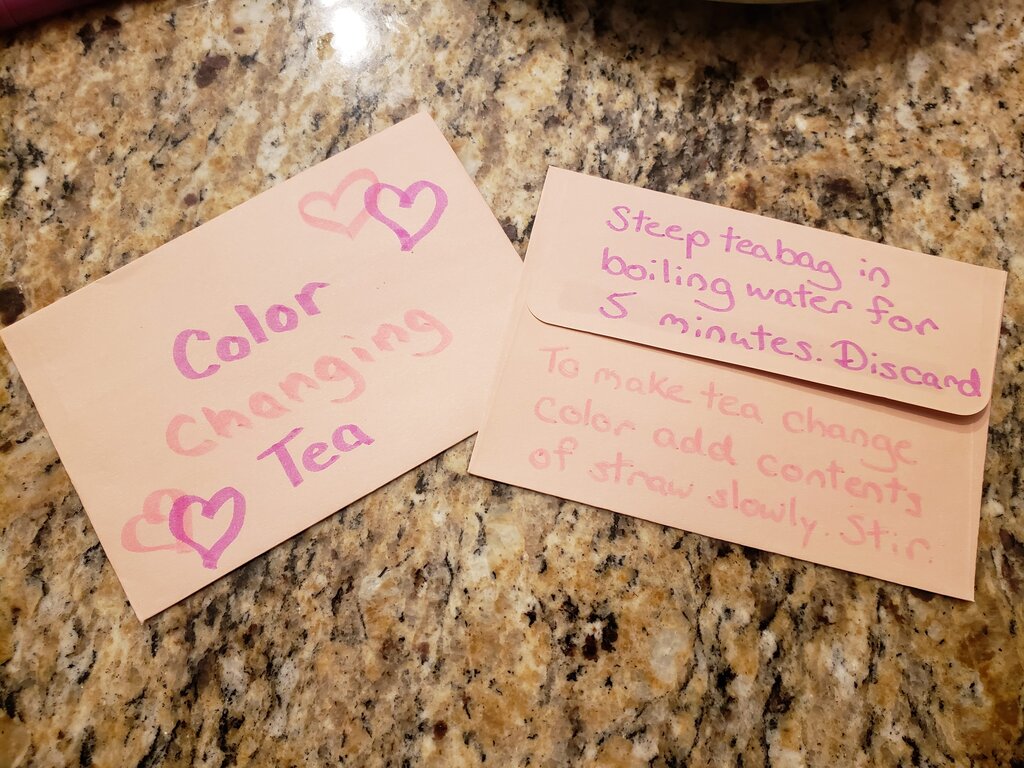 Color
Changing
Tea
Steep teabag in
boiling water for
5 minutes. Discard
To make tea change
Color add contents
of straw slowly. Stir.